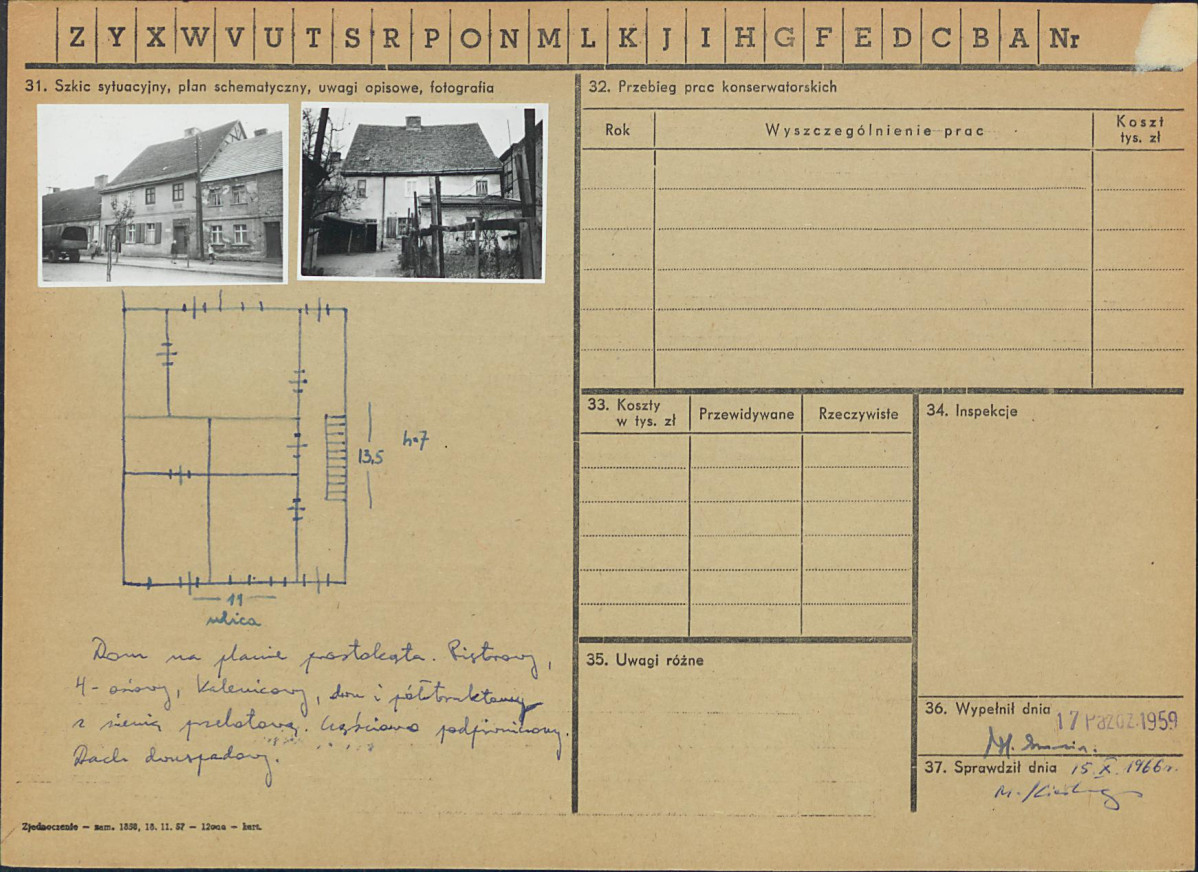 Z Y X W V U T S R P O N M L K J I H G F E D C B A Nr
31. Szkic sytuacyjny, plan schematyczny, uwagi opisowe, fotografia
13,5
h=7
11
ulica
Dom na planie prostokąta. Piętrowy,
4-osiowy, kalenicowy, dwu i półtraktowy
z sienią przelotową. Częściowo podpiwniczony.
Dach dwuspadowy.
Zjednoczenie – zam. 1858, 18. 11. 57 – – kart.
32. Przebieg prac konserwatorskich
Rok
Wyszczególnienie prac
Koszt
tys. zł
33. Koszty
w tys. zł
Przewidywane
Rzeczywiste
34. Inspekcje
35. Uwagi różne
36. Wypełnił dnia
17 PAŹDZ. 1959
37. Sprawdził dnia 15. X. 1966 r.